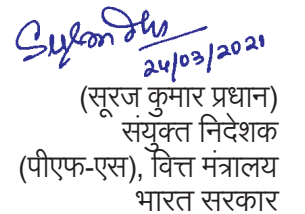 24/03/2021
(सूरज कुमार प्रधान)
संयुक्त निदेशक
(पीएफ-एस), वित्त मंत्रालय
भारत सरकार